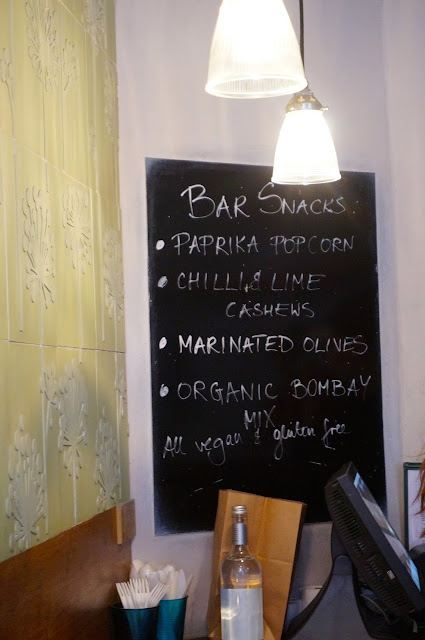 BAR SNACKS
• PAPRIKA POPCORN
• CHILLI & LIME
CASHEWS
• MARINATED OLIVES
• ORGANIC BOMBAY
MIX
All vegan & gluten free